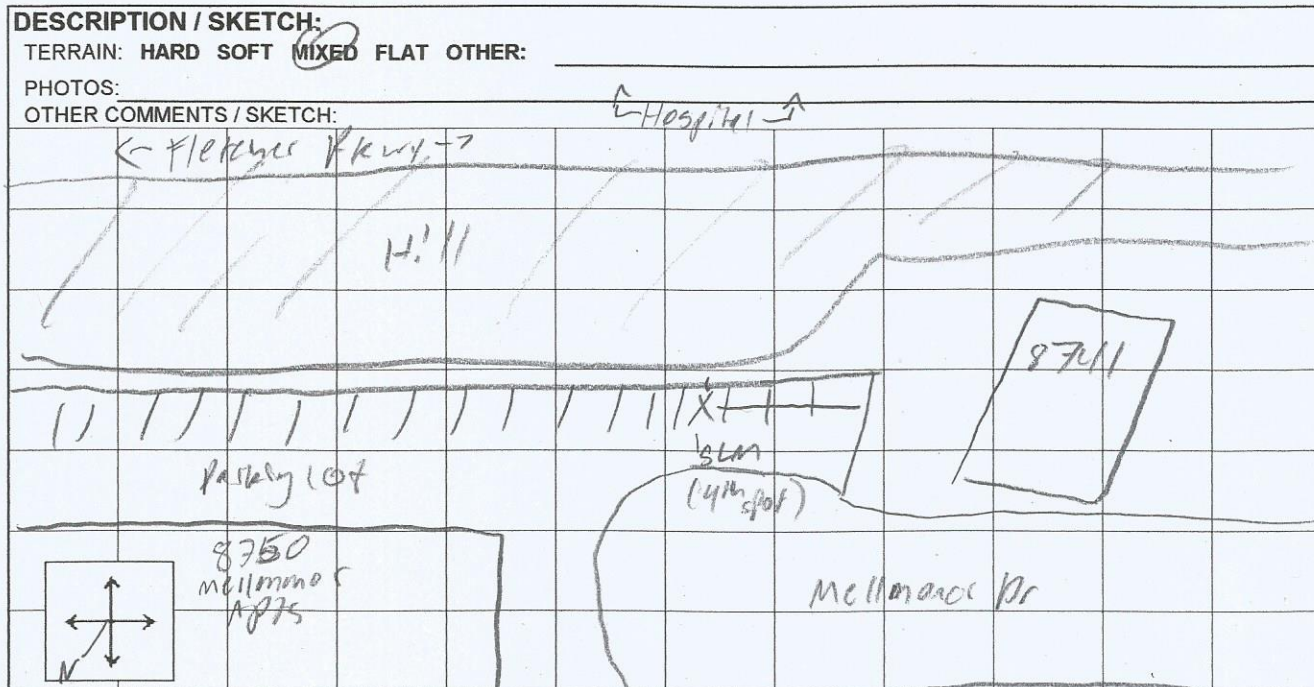 DESCRIPTION / SKETCH:
TERRAIN: HARD SOFT MIXED FLAT OTHER:
PHOTOS:
OTHER COMMENTS / SKETCH:
Hospital
← Fletcher Pkwy →
Hill
8741
X
SLM
(4th spot)
Parking lot
8750
Mellmanor
Apts
Mellmanor Dr
N